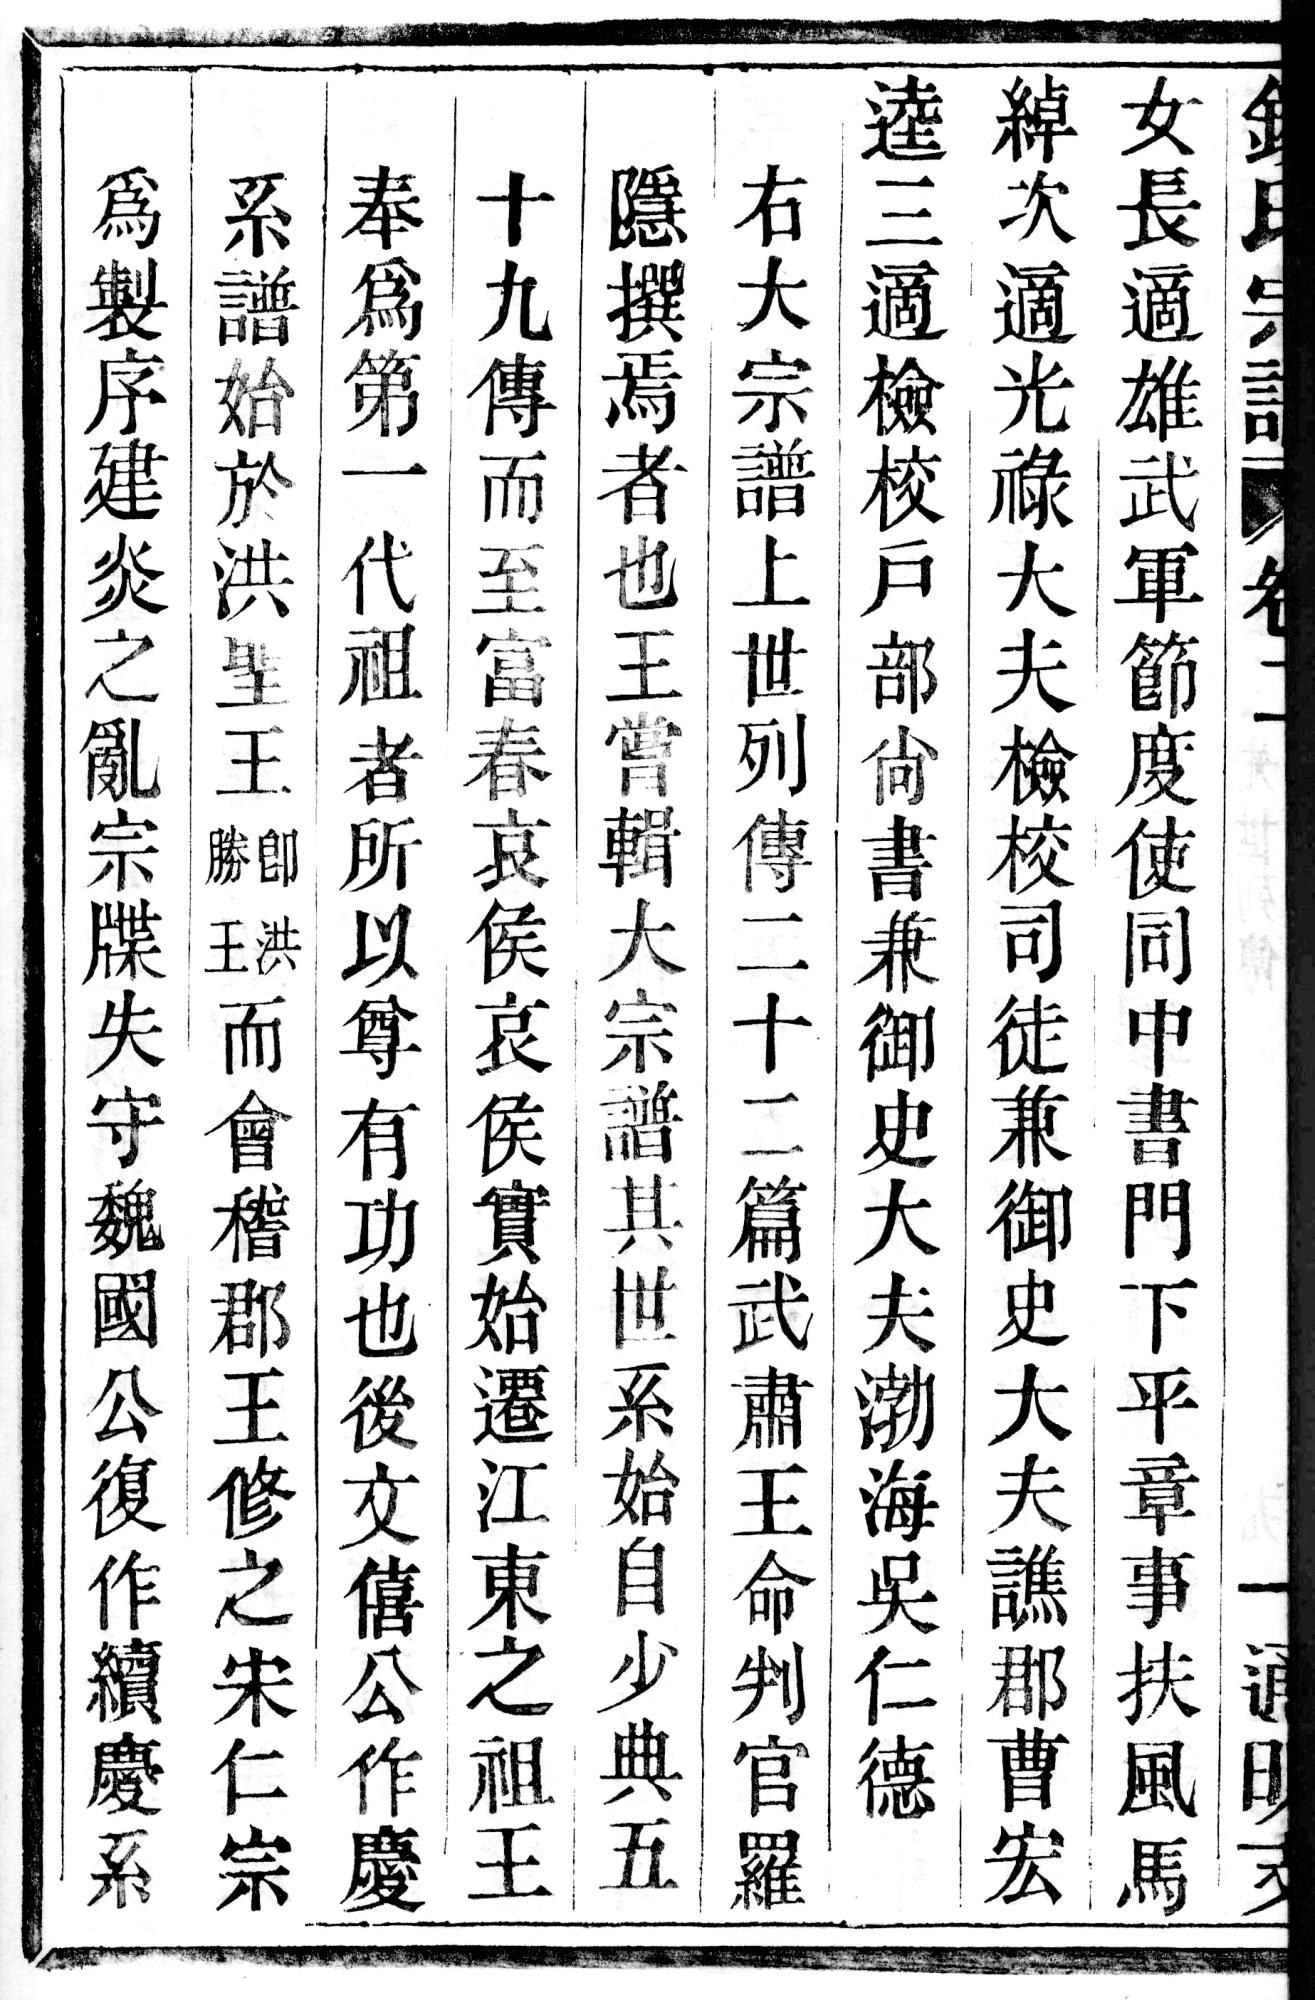 錢氏宗譜 卷二 一 通明支
女長適雄武軍節度使同中書門下平章事扶風馬
綽次適光祿大夫檢校司徒兼御史大夫譙郡曹宏
逵三適檢校戶部尙書兼御史大夫渤海吳仁德
右大宗譜上世列傳二十二篇武肅王命判官羅
隱撰焉者也王嘗輯大宗譜其世系始自少典五
十九傳而至富春哀侯哀侯實始遷江東之祖王
奉爲第一代祖者所以尊有功也後文僖公作慶
系譜始於洪聖王卽洪勝王而會稽郡王修之宋仁宗
爲製序建炎之亂宗牒失守魏國公復作續慶系